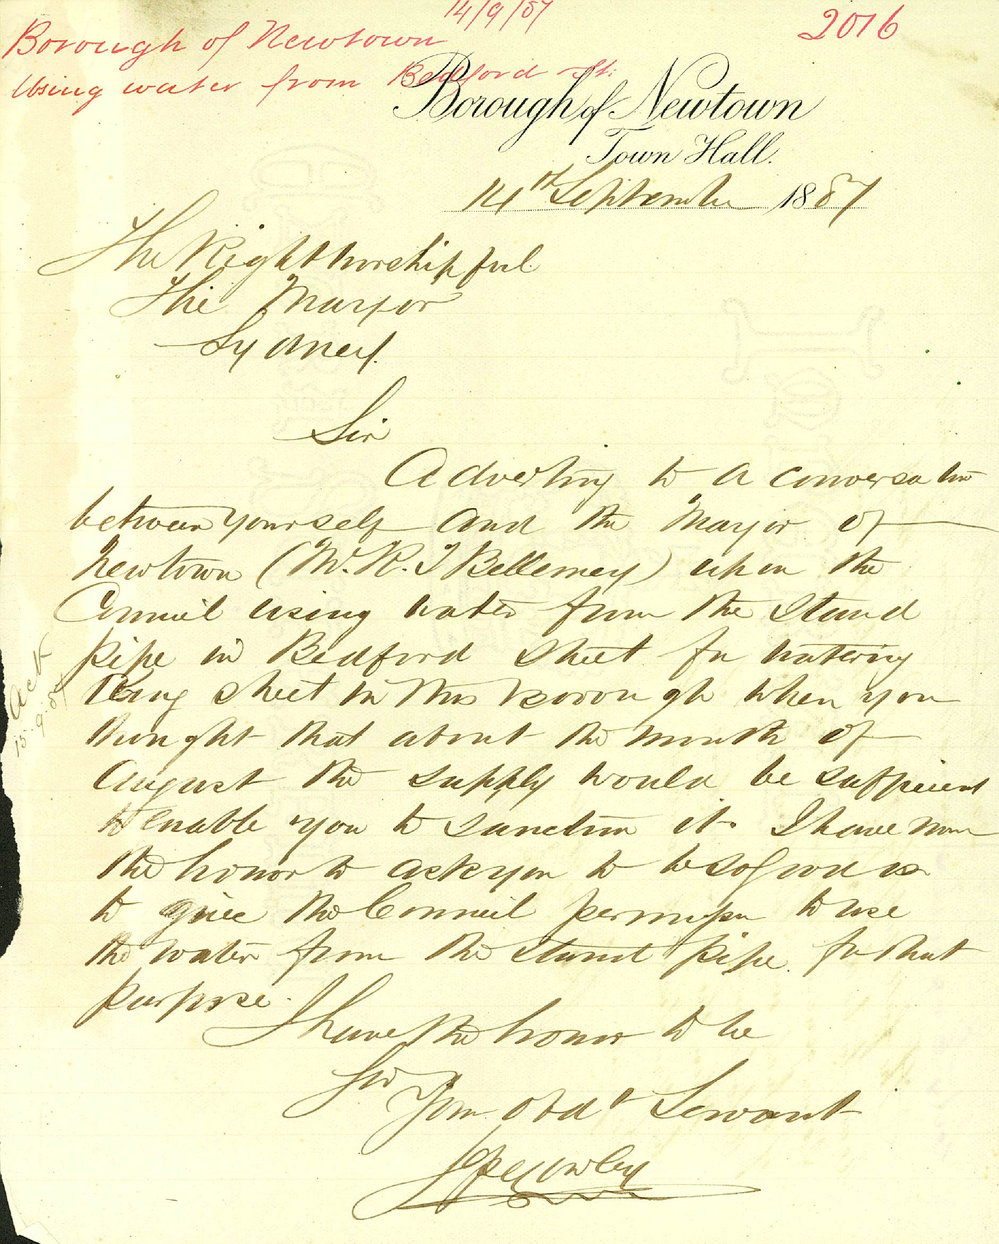 14/9/87
2016
Borough of Newtown
Using water from Bedford St:
Borough of Newtown
Town Hall.
14th September 1887
The Right Worshipful
The Mayor
Sydney.
Sir
Adverting to a conversation
between yourself and the Mayor of
Newtown (Mr. R. T Bellemey) upon the
Council using water from the Stand
pipe in Bedford Street for watering
King Street in this Borough when you
thought that about the month of
August the supply would be sufficient
to enable you to sanction it. I have now
the honor to ask you to be so good as
to give the Council permission to use
the water from the Stand pipe for that
purpose.
I have the honor to be
Sir
Your Obdt Servant
Ack
15.9.87